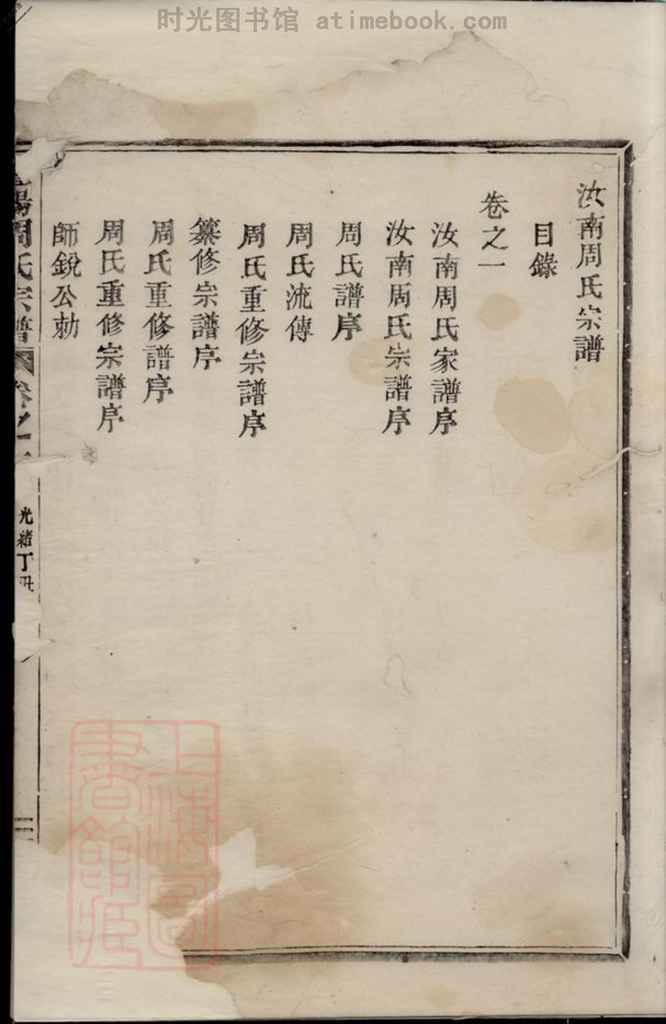 时光图书馆 atimebook.com
汝南周氏宗譜
目錄
卷之一
汝南周氏家譜序
汝南周氏宗譜序
周氏譜序
周氏流傳
周氏重修宗譜序
纂修宗譜序
周氏重修譜序
周氏重修宗譜序
師銳公勅
陽周氏宗譜 卷之一
光緒丁丑
上海圖書館藏